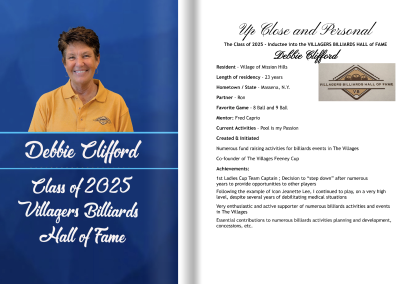 Debbie Clifford
Class of 2025
Villagers Billiards
Hall of Fame
Up Close and Personal
The Class of 2025 - Inductee into the VILLAGERS BILLIARDS HALL of FAME
Debbie Clifford
Resident - Village of Mission Hills
Length of residency - 23 years
Hometown / State - Massena, N.Y.
Partner - Ron
Favorite Game - 8 Ball and 9 Ball
Mentor: Fred Caprio
Current Activities - Pool is my Passion
Created & Initiated
Numerous fund raising activities for billiards events in The Villages
Co-founder of The Villages Feeney Cup
Achievements:
1st Ladies Cup Team Captain ; Decision to "step down" after numerous
years to provide opportunities to other players
Following the example of icon Jeanette Lee, I continued to play, on a very high
level, despite several years of debilitating medical situations
Very enthusiastic and active supporter of numerous billiards activities and events
in The Villages
Essential contributions to numerous billiards activities planning and development,
concessions, etc.
VILLAGERS BILLIARDS HALL OF FAME